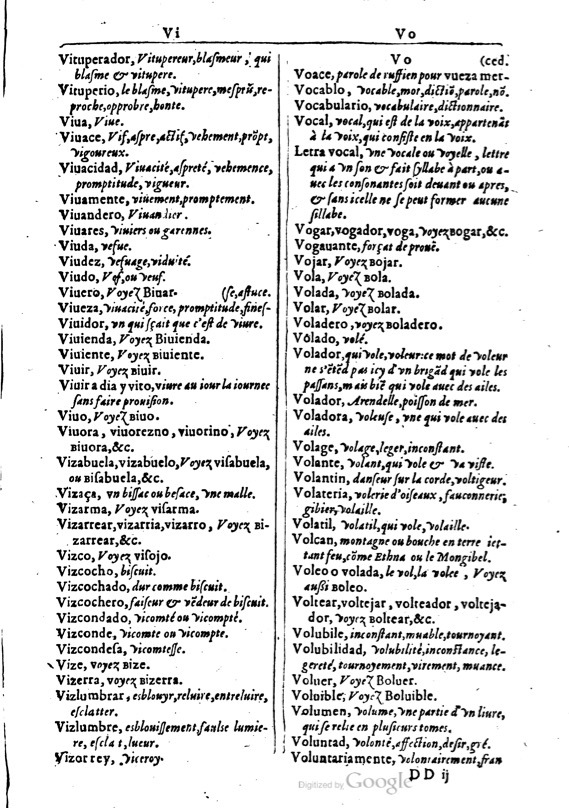 Vi
Vo
Vituperador, Vitupereur, blasmeur, qui
blasme & vitupere.
Vituperio, le blasme, vitupere, mespriš, re-
proche, opprobre, honte.
Viua, Viue.
Viuace, Vif, aspre, actif, vehement, prōpt,
vigoureux.
Viuacidad, Viuacité, aspreté, vehemence,
promptitude, vigueur.
Viuamente, viuement, promptement.
Viuandero, Viuandier.
Viuares, viuiers ou garennes.
Viuda, vefue.
Viudez, vefuage, viduité.
Viudo, Vef, ou veuf.
Viuero, Voyez Biuar. (se, astuce.
Viueza, viuacité, force, promptitude, fines-
Viuidor, vn qui sçait que c'est de viure.
Viuienda, Voyez Biuienda.
Viuiente, Voyez Biuiente.
Viuir, Voyez Biuir.
Viuir a dia y vito, viure au iour la iournee
sans faire prouision.
Viuo, Voyez Biuo.
Viuora, viuorezno, viuorino, Voyez
Biuora, &c.
Vizabuela, vizabuelo, Voyez visabuela,
ou Bisabuela, &c.
Vizaça, vn bissac ou besace, vne malle.
Vizarma, Voyez visarma.
Vizarrear, vizarria, vizarro, Voyez Bi-
zarrear, &c.
Vizco, Voyez visojo.
Vizcocho, biscuit.
Vizcochado, dur comme biscuit.
Vizcochero, faiseur & vēdeur de biscuit.
Vizcondado, vicomté ou vicompté.
Vizconde, vicomte ou vicompte.
Vizcondesa, Vicomtesse.
Vize, voyez Bize.
Vizerra, voyez Bizerra.
Vizlumbrar, esblouyr, reluire, entreluire,
esclatter.
Vizlumbre, esblouissement, faulse lumie-
re, esclat, lueur.
Vizorrey, Viceroy.
Vo (ced.
Voace, parole de ruffien pour vueza mer-
Vocablo, vocable, mot, dictiō, parole, nō.
Vocabulario, vocabulaire, dictionnaire.
Vocal, vocal, qui est de la voix, appartenāt
à la voix, qui consiste en la voix.
Letra vocal, vne vocale ou voyelle, lettre
qui a vn son & fait syllabe à part, ou a-
uec les consonantes soit deuant ou apres,
& sans icelle ne se peut former aucune
sillabe.
Vogar, vogador, voga, voyez Bogar, &c.
Vogauante, forçat de prouē.
Vojar, Voyez Bojar.
Vola, Voyez Bola.
Volada, voyez Bolada.
Volar, Voyez Bolar.
Voladero, voyez Boladero.
Volado, volé.
Volador, qui vole, voleur: ce mot de voleur
ne s'ētēd pas icy d'vn brigād qui vole les
passans, mais biē qui vole auec des ailes.
Volador, Arendelle, poisson de mer.
Voladora, voleuse, vne qui vole auec des
ailes.
Volage, volage, leger, inconstant.
Volante, volant, qui vole & va viste.
Volantin, danseur sur la corde, voltigeur.
Volateria, volerie d'oiseaux, fauconnerie,
gibier, volaille.
Volatil, volatil, qui vole, volaille.
Volcan, montagne ou bouche en terre iet-
tant feu, cōme Ethna ou le Mongibel.
Voleo o volada, le vol, la volee, Voyez
aussi Boleo.
Voltear, voltejar, volteador, volteja-
dor, Voyez Boltear, &c.
Volubile, inconstant, muable, tournoyant.
Volubilidad, volubilité, inconstance, le-
gereté, tournoyement, virement, muance.
Voluer, Voyez Boluer.
Voluible, Voyez Boluible.
Volumen, volume, vne partie d'vn liure,
qui se relie en plusieurs tomes.
Voluntad, volonté, affection, desir, gré.
Voluntariamente, volontairement, fran
DD ij
Digitized by Google